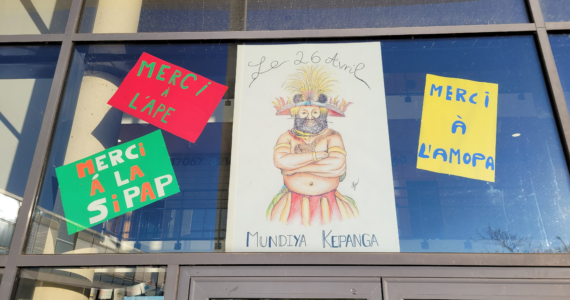 Le 26 Avril
MERCI
À
L'APE
MERCi
À LA
SiPAP
MERCi
À
L'AMOPA
MUNDIYA KEPANGA